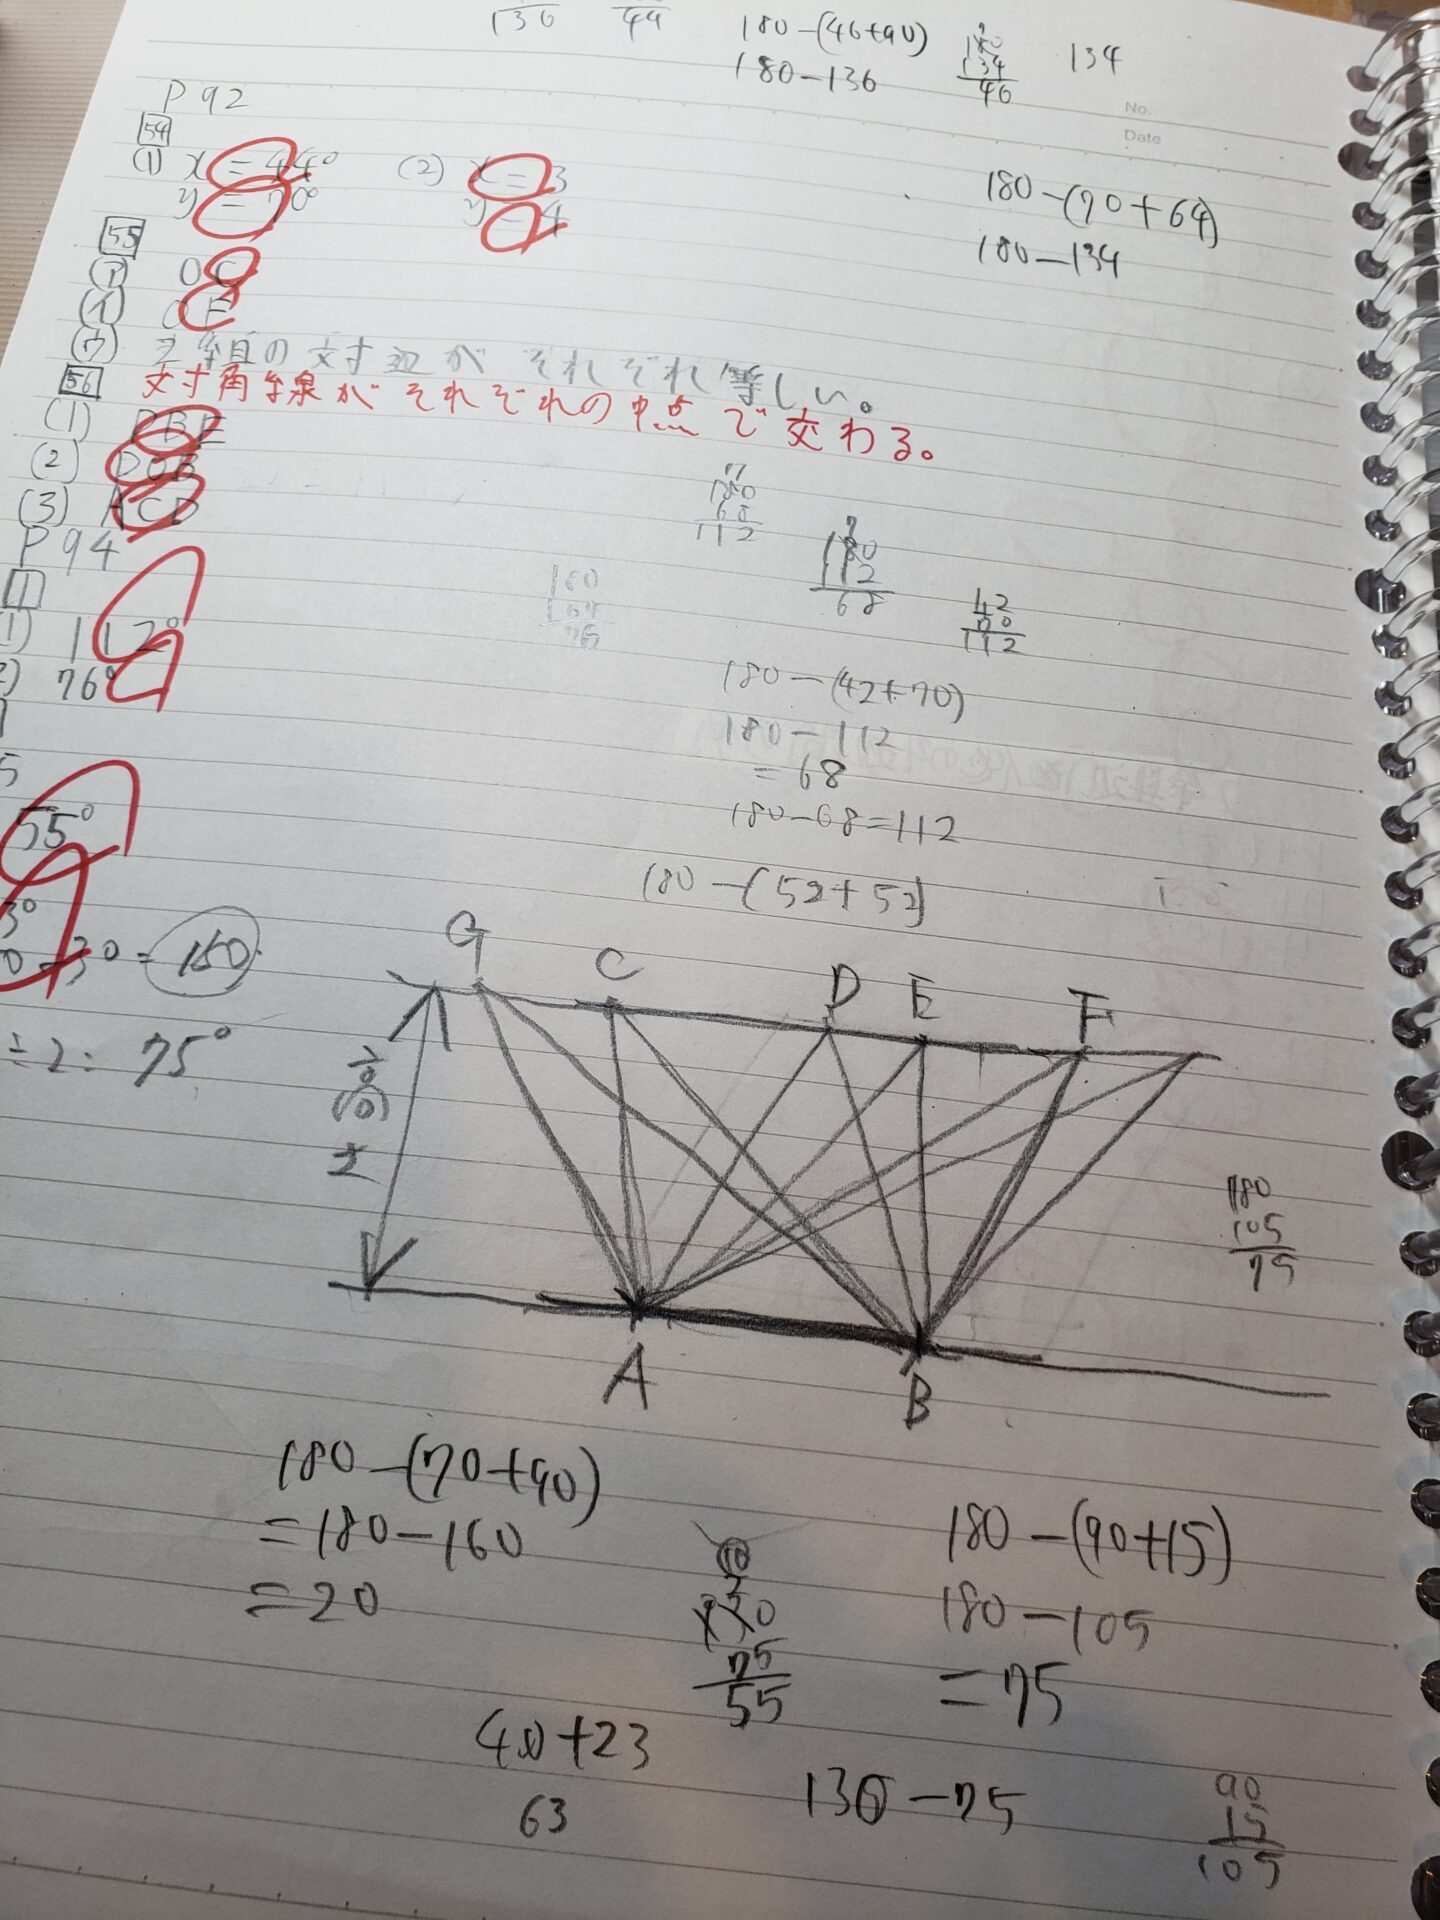 136
44
180-(46+90)
180-136
180
134
46
134
No.
Date
P92
54
(1) x=44° (2) x=3
y=70° y=4
180-(70+64)
180-134
55
OC
(イ) OF
(ウ) 2組の対辺がそれぞれ等しい。
対角線がそれぞれの中点で交わる。
56
(1) DBE
(2)
(3) ACD
P94
1
(1) 112°
76°
180
68
112
180
112
68
42
70
112
180
104
76
180-(42+70)
180-112
=68
180-68=112
180-(52+52)
5
55°
3°
0-30=150
÷2=75°
G C D E F
高さ
A B
180
105
75
180-(70+90)
=180-160
=20
10
2
130
75
55
180-(90+15)
180-105
=75
40+23
63
130-75
90
15
105